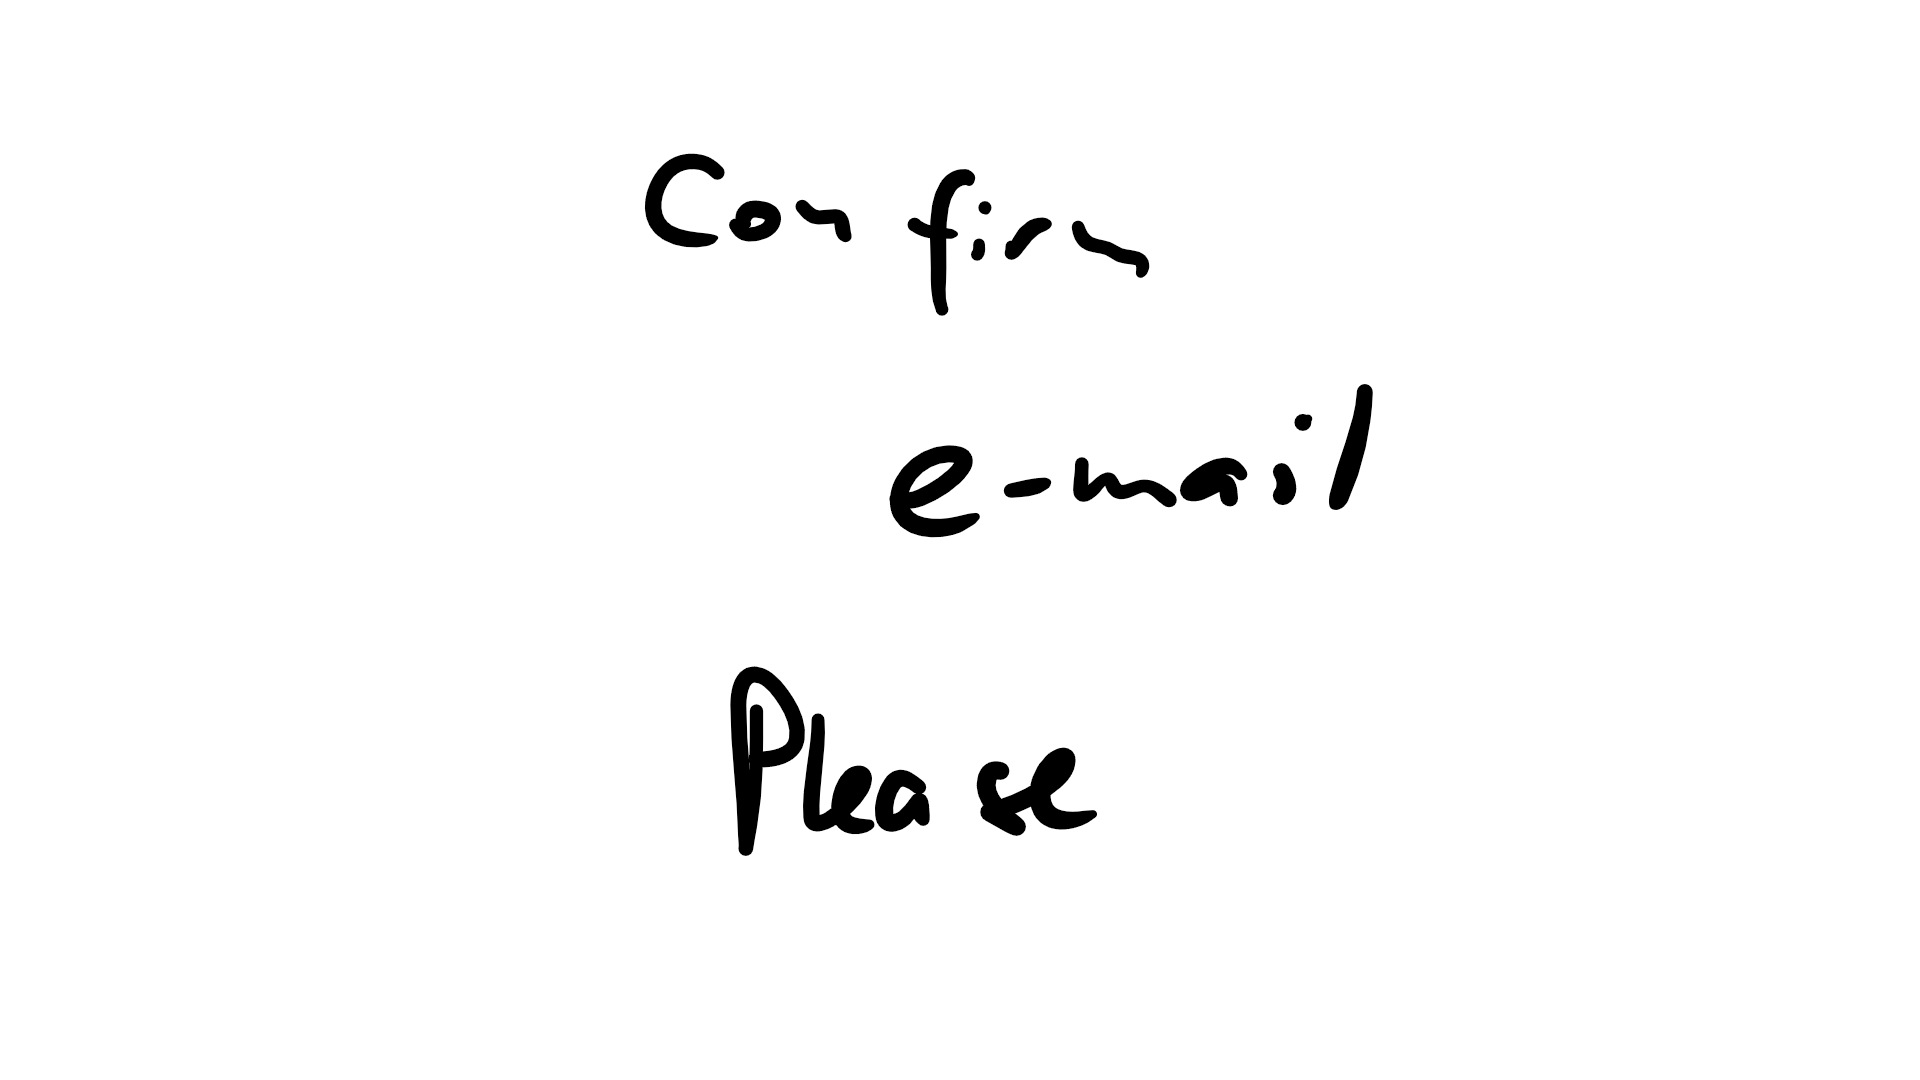 Confirm
e-mail
Please